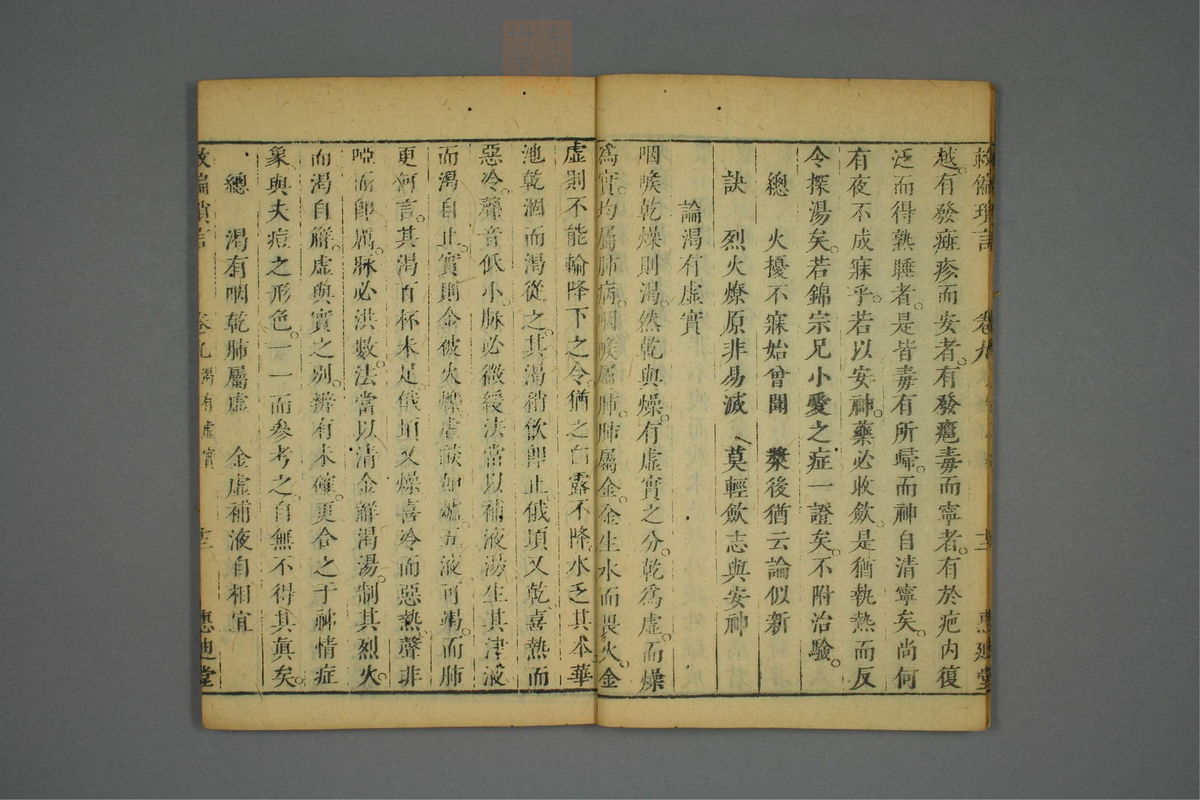 救偏瑣言 卷九 十二 惠迪堂
越。有發痲疹而安者。有發痘毒而寧者。有於疤內復
泛而得熟睡者。是皆毒有所歸。而神自清寧矣。尚何
有夜不成寐乎。若以安神藥必收斂。是猶執熱而反
令探湯矣。若錦宗兄小愛之症一證矣。不附治驗。
總 火擾不寐始曾聞 漿後猶云論似新
訣 烈火燎原非易滅 莫輕歛志與安神
論渴有虛實
咽喉乾燥則渴。然乾與燥。有虛實之分。乾為虛。而燥
為實。均屬肺病。咽喉屬肺。肺屬金。金生水而畏火。金
虛則不能輸降下之令。猶之白露不降。水乏其本。華
池乾涸而渴從之。其渴稍飲即止。俄頃又乾。喜熱而
惡冷。聲音低小。脉必微緩。法當以補液湯生其津液。
而渴自止。實則金被火爍。虐𦦨如爐。五液可竭。而肺
更何言。其渴百杯未足。俄頃又燥。喜冷而惡熱。聲非
啞而即厲。脉必洪數。法當以清金解渴湯。制其烈火。
而渴自解。虛與實之別。辨有未確。更合之于神情症
象與夫痘之形色。一一而參考之。自無不得其眞矣。
總 渴有咽乾肺屬虛 金虛補液自相宜
救偏瑣言 卷九 渴有虛實 十三 惠迪堂